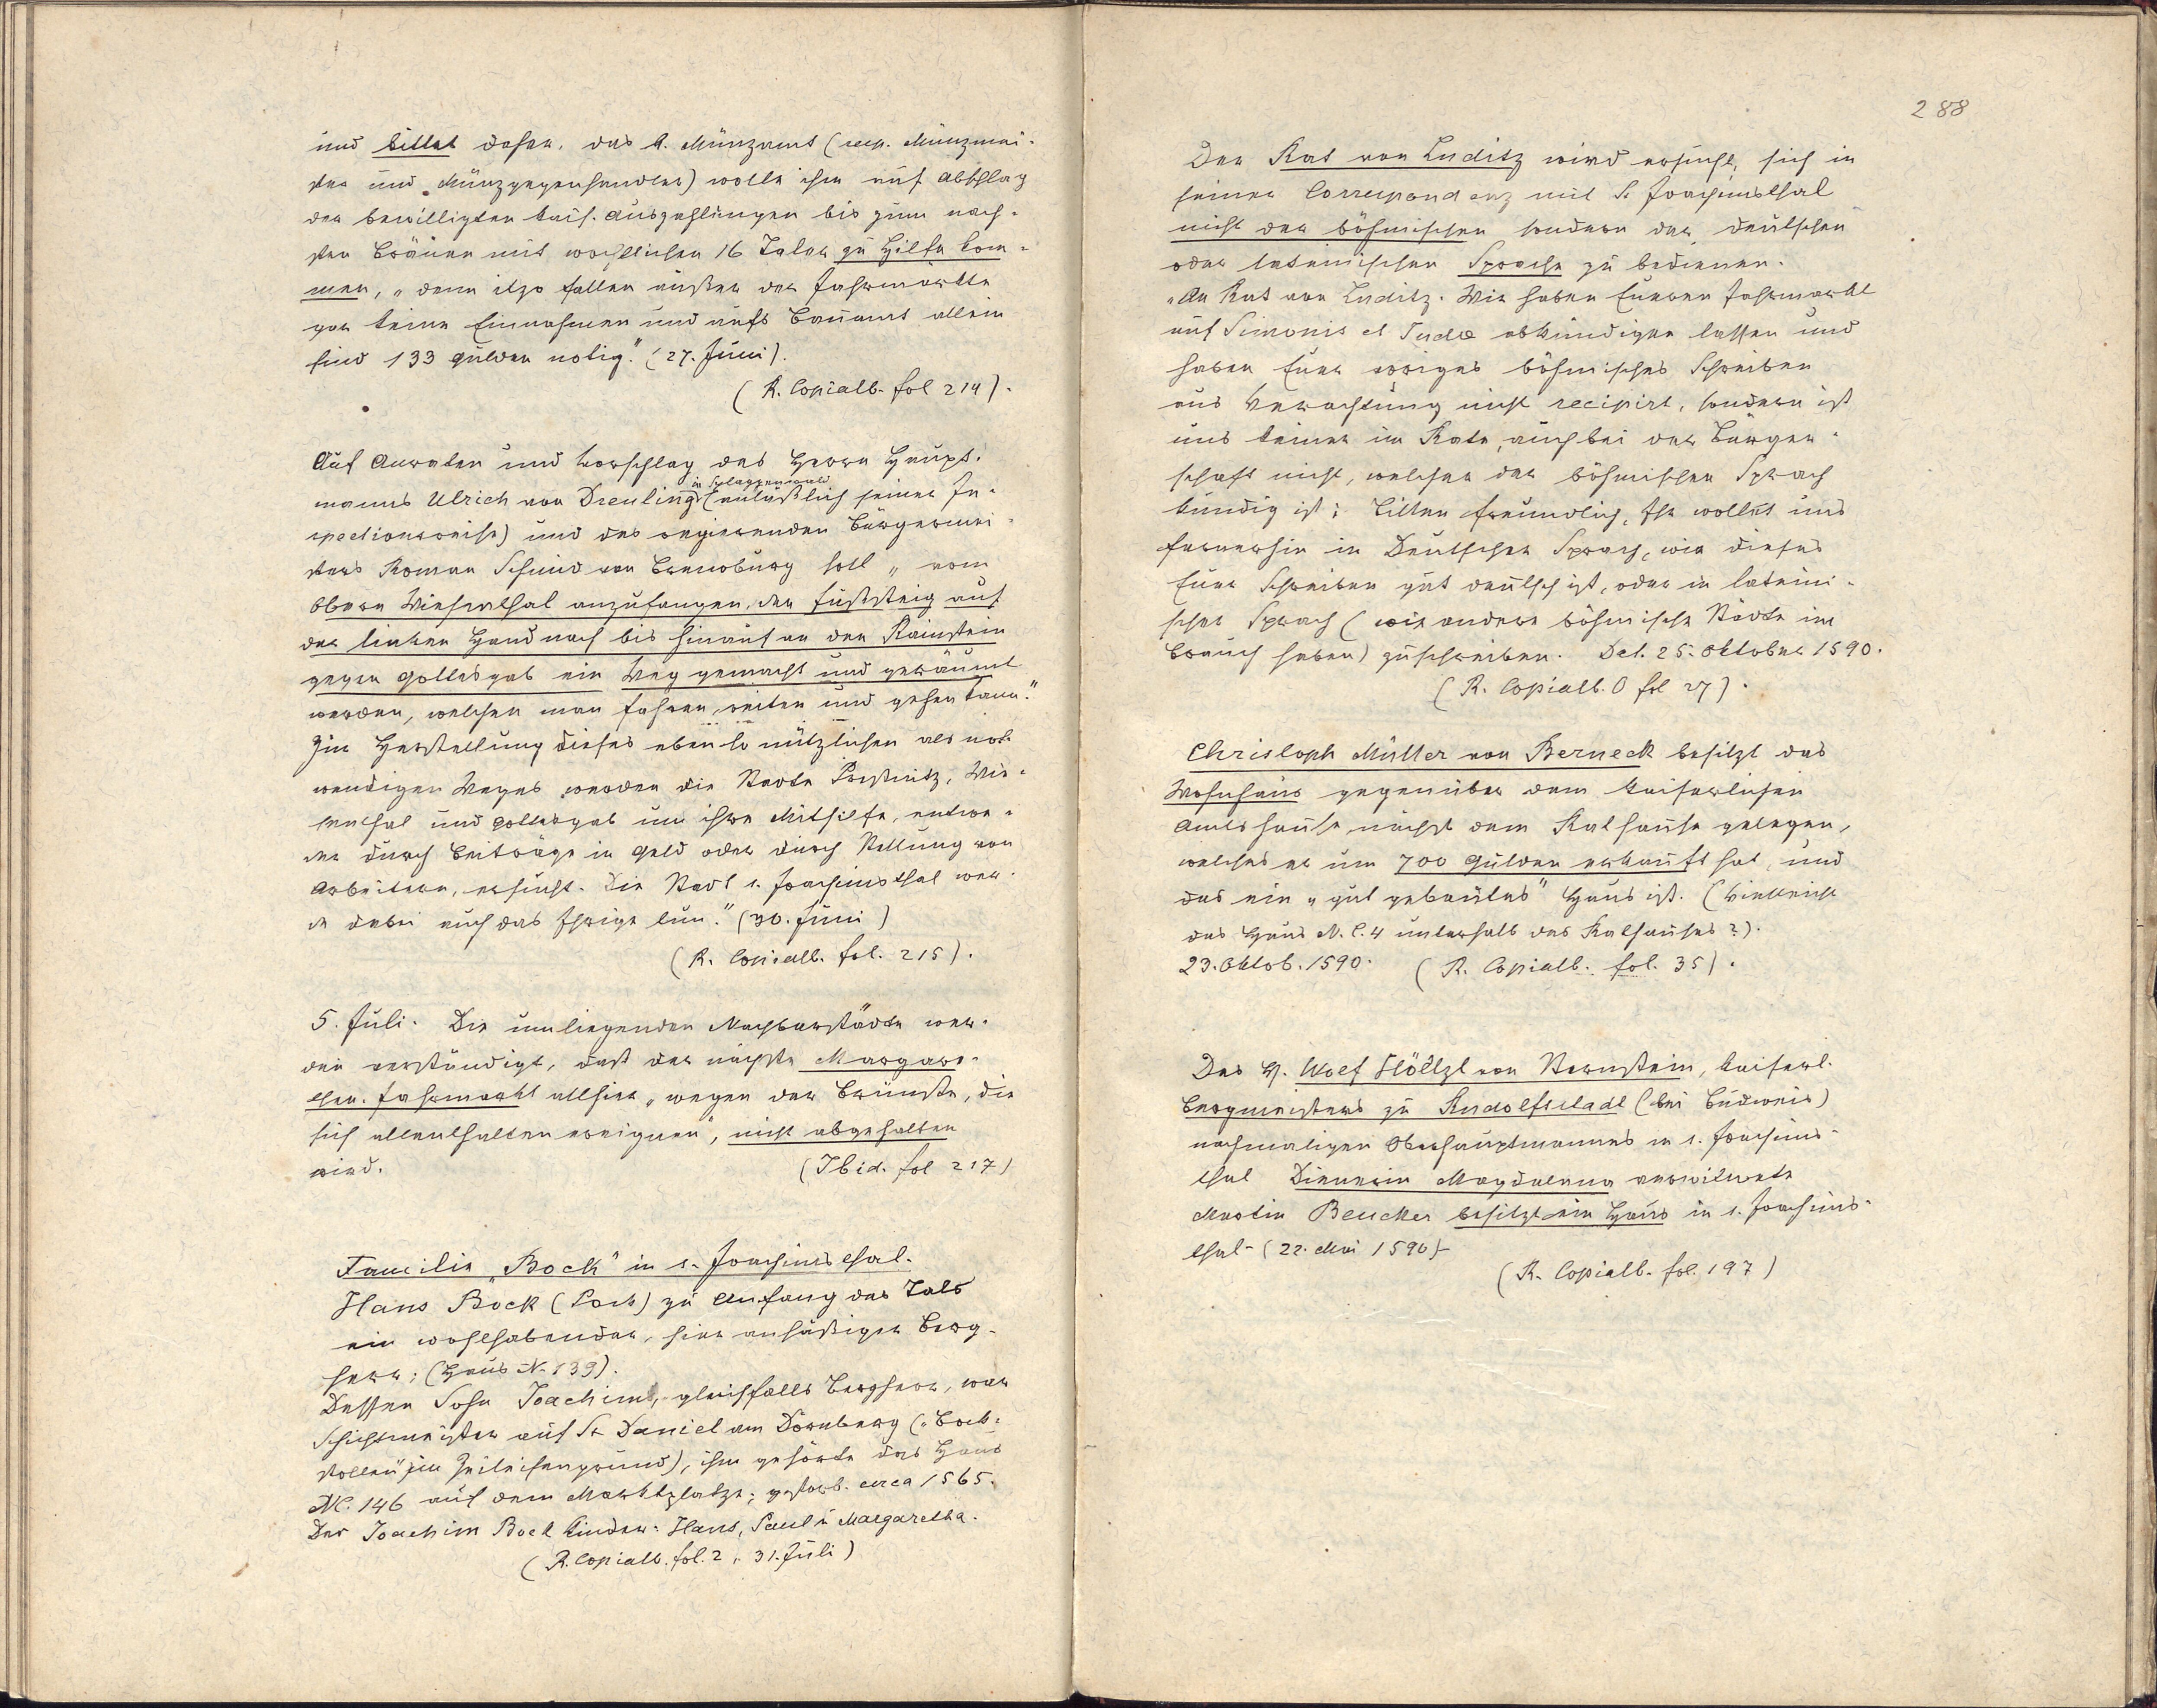 und bittet daher, das k. Münzamt (resp. Münzmei-
ster und Münzgegenhandler) wolle ihm auf Abschlag
der bewilligten kais. Auszahlungen bis zum näch-
sten Bräuen mit wochtlichen 16 Taler zu Hilfe kom-
men, „denn itzo fallen außer der Jahrmärkte
gar keine Einnahmen und aufs Bauamt allein
sind 133 Gulden nötig." (27. Juni).
(R. Copialb. fol 214).
Auf Anraten und Vorschlag des Herrn Haupt-
in Schlaggenwald
manns Ulrich von Dreuling (anläßlich seiner In-
spectionsreise) und des regierenden Bürgermei-
sters Roman Schmid von Brensburg soll „vom
Obern Wiesenthal anzufangen, den Fußsteig auf
der linken Hand nach bis hinauf an den Rainstein
gegen Gottesgab ein Weg gemacht und geräumt
werden, welchen man fahren, reiten und gehen kann."
Zur Herstellung dieses ebenso nützlichen als not-
wendigen Weges werden die Städte Preßnitz, Wie-
senthal und Gottesgab um ihre Mithilfe, entwe-
der durch Beiträge in Geld oder durch Stellung von
Arbeitern, ersucht. Die Stadt s. Joachimsthal wer-
de dabei auch das Ihrige tun." (30. Juni)
(R. Copialb. fol. 215).
5. Juli. Die umliegenden Nachbarstädte wer-
den verständigt, daß der nächste Margare-
then-Jahrmarkt allhier „wegen der Brünste, die
sich allenthalben ereignen", nicht abgehalten
wird. (Ibid. fol 217)
Familie „Bock" in s. Joachimsthal.
Hans Bock (Pock) zu Anfang des Tals
ein wohlhabender, hier ansäßiger Berg-
herr; (Haus N. 139).
Dessen Sohn Joachim, gleichfalls Bergherr, war
Schichtmeister auf St Daniel am Dürnberg („Bock-
stollen" im Zeileisengrund), ihm gehörte das Haus
NC. 146 auf dem Marktplatze; gestorb. circa 1565.
Des Joachim Bock Kinder: Hans, Paul u Margaretha.
(R. Copialb. fol. 2, 31. Juli)
288
Der Rat von Luditz wird ersucht, sich in
seiner Correspondenz mit S. Joachimsthal
nicht der böhmischen sondern der deutschen
oder lateinischen Sprache zu bedienen.
„An Rat von Luditz. Wir haben Eueren Jahrmarkt
auf Simonis et Judæ abkündigen lassen und
haben Euer voriges böhmisches Schreiben
aus Verachtung nicht recipirt, sondern ist
uns keiner im Rate, auch bei der Bürger-
schaft nicht, welcher der böhmischen Sprach
kundig ist; Bitten freundlich, Ihr wollet uns
fernerhin in Deutscher Sprach, wie dieses
Euer Schreiben gut deutsch ist, oder in lateini-
scher Sprach (wie andere böhmische Städte im
Brauch haben) zuschreiben. Dct. 25. Oktober 1590.
(R. Copialb. O fol 27).
Christoph Müller von Berneck besitzt das
Wohnhaus gegenüber dem kaiserlichen
Amtshause nächst dem Rathause gelegen,
welches er um 700 Gulden erkauft hat, und
das ein „gut gebautes" Haus ist. (Vielleicht
das Haus N. C. 4 unterhalb des Rathauses?).
23. Oktob. 1590. (R. Copialb. fol. 35).
Des H. Wolf Höltzl von Sternstein, kaiserl.
Bergmeisters zu Rudolfstadt (bei Budweis)
nachmaligen Oberhauptmannes in s. Joachims-
thal Dienerin Magdalena verwitwete
Martin Beucker besitzt ein Haus in s. Joachims-
thal- (22. Mai 1590)-
(R. Copialb. fol. 197)